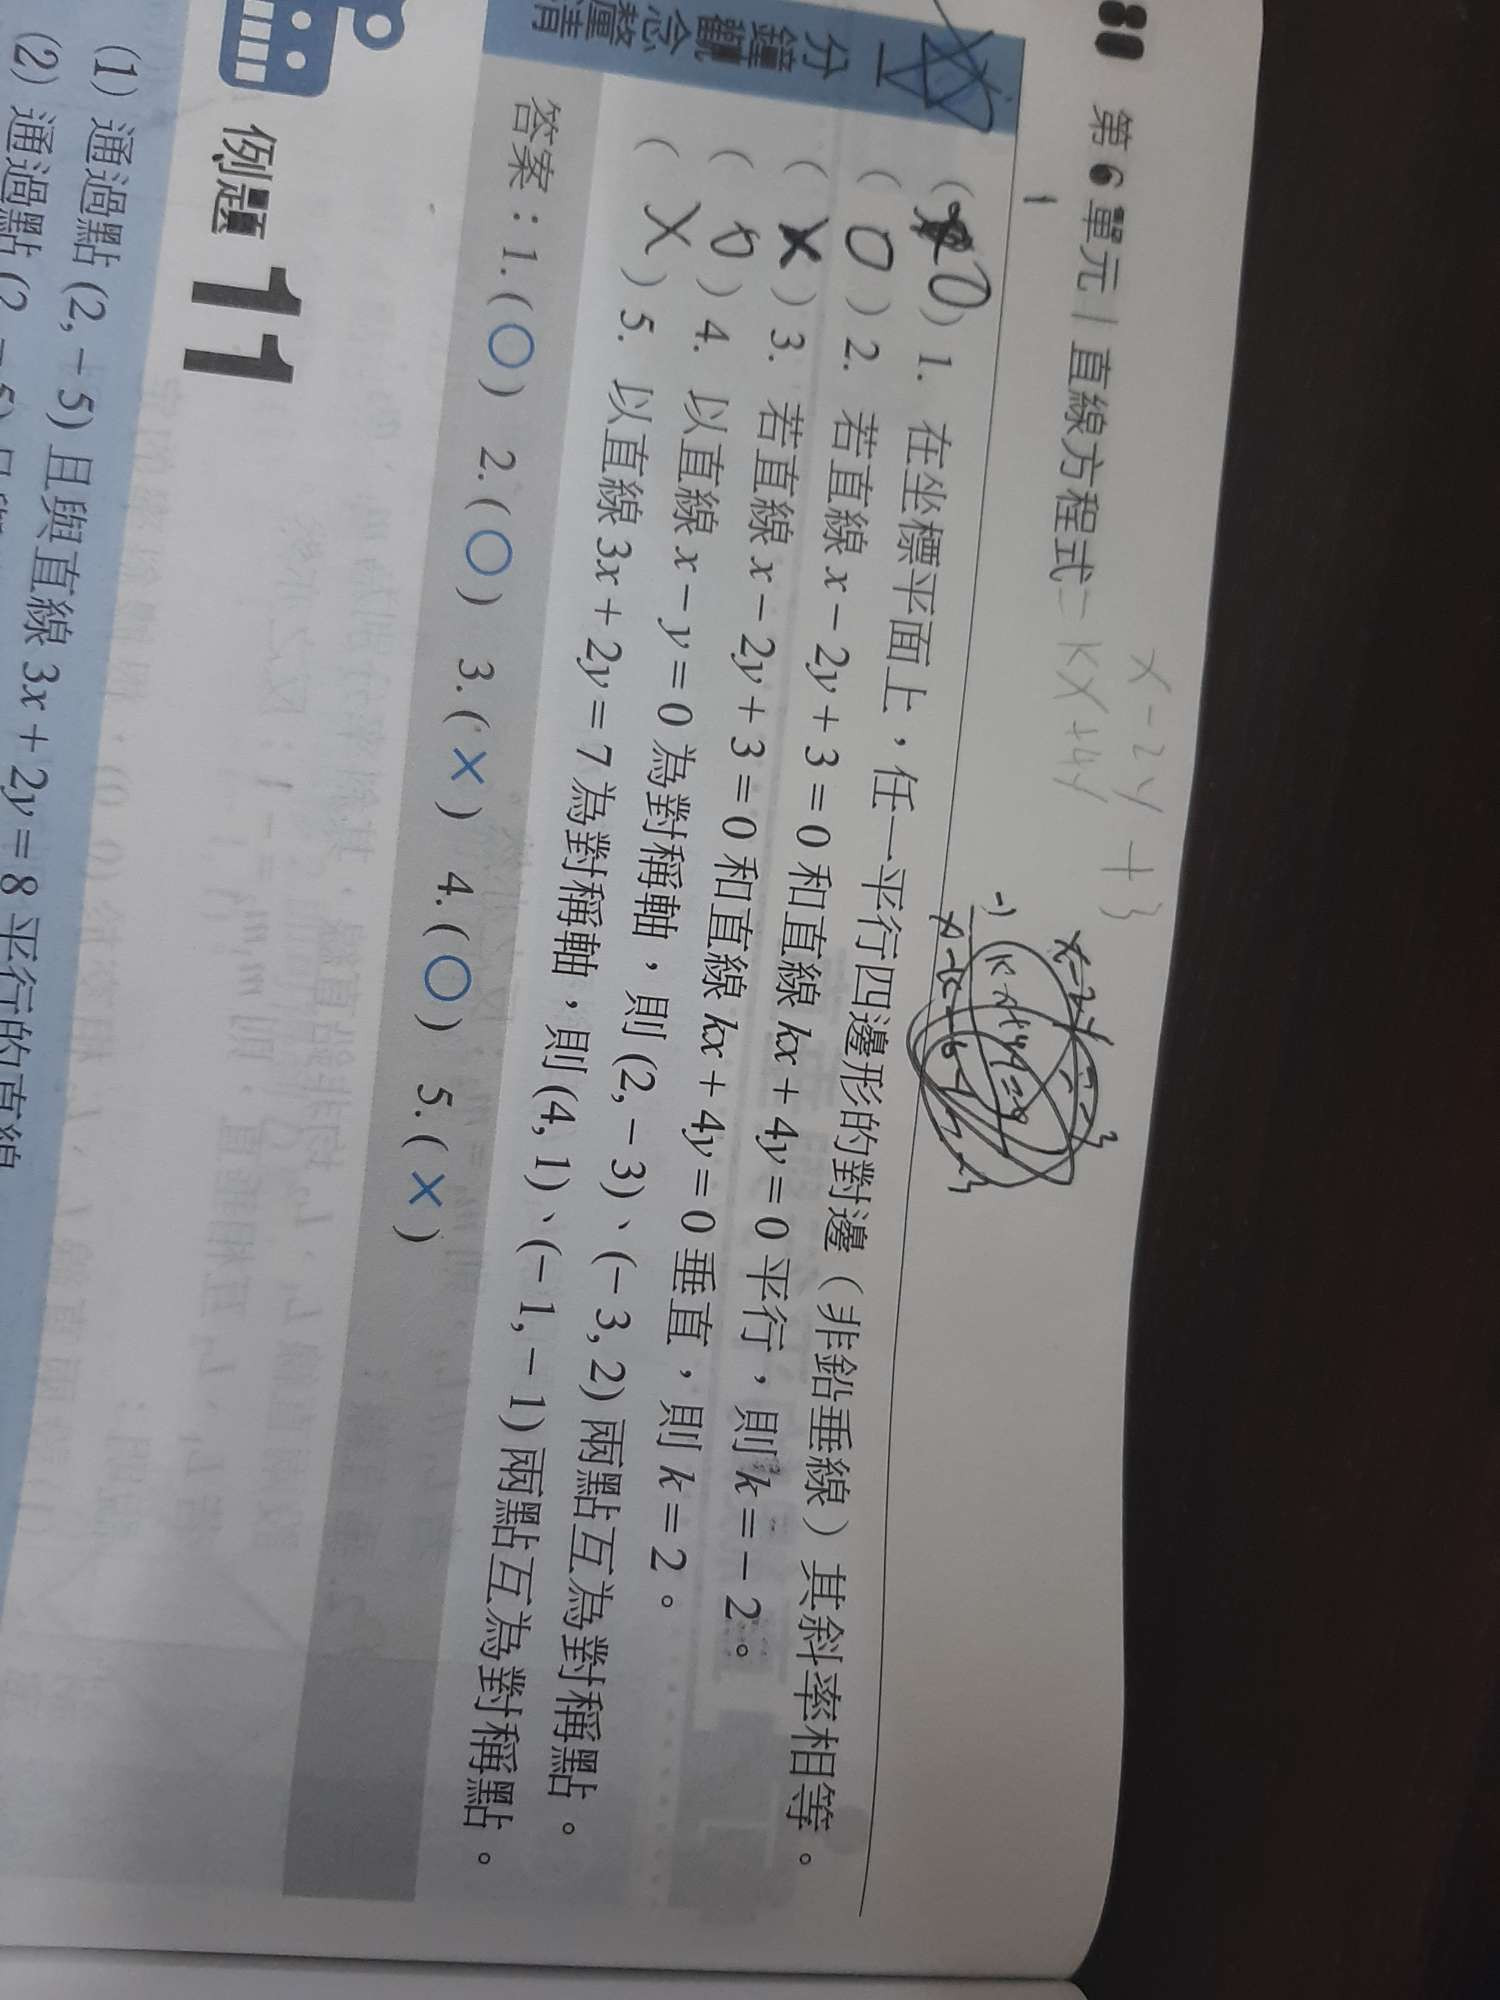 80 第6單元 | 直線方程式二
x-2y+3
kx+4y
1
一分鐘觀念釐清
(O) 1. 在坐標平面上，任一平行四邊形的對邊（非鉛垂線）其斜率相等。
(O) 2. 若直線 x-2y+3=0 和直線 kx+4y=0 平行，則 k=-2。
(X) 3. 若直線 x-2y+3=0 和直線 kx+4y=0 垂直，則 k=2。
(O) 4. 以直線 x-y=0 為對稱軸，則 (2,-3)、(-3,2) 兩點互為對稱點。
(X) 5. 以直線 3x+2y=7 為對稱軸，則 (4,1)、(-1,-1) 兩點互為對稱點。
答案：1.(○) 2.(○) 3.(×) 4.(○) 5.(×)
例題 11
(1) 通過點 (2,-5) 且與直線 3x+2y=8 平行的直線
(2) 通過點 (2,-5)